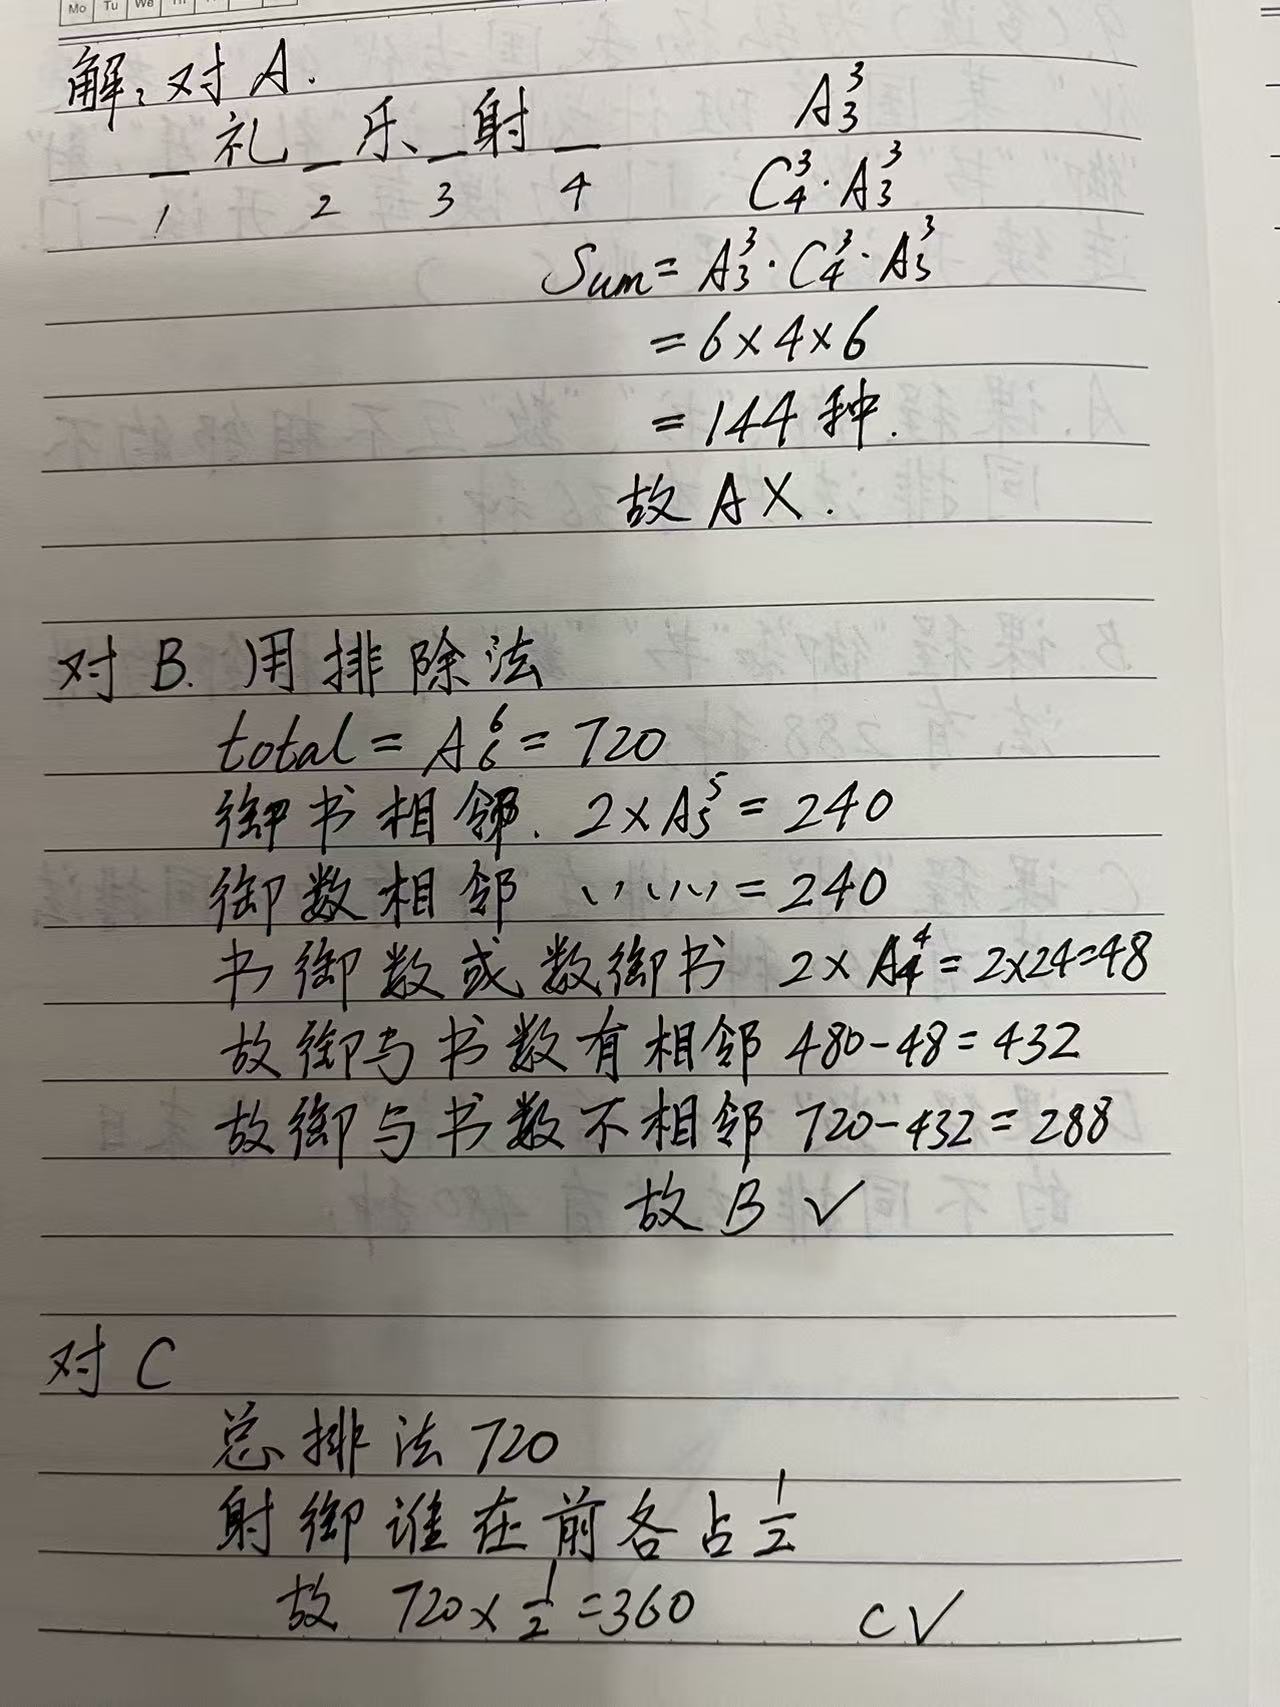 Mo Tu We Th
解:对A.
_礼_乐_射_ A₃³
1 2 3 4 C₄³·A₃³
Sum=A₃³·C₄³·A₃³
=6×4×6
=144种.
故A×.
对B.用排除法
total=A₆⁶=720
御书相邻.2×A₅⁵=240
御数相邻 〃 〃=240
书御数或数御书 2×A₄⁴=2×24=48
故御与书数有相邻 480-48=432
故御与书数不相邻 720-432=288
故B✓
对C
总排法720
射御谁在前各占1/2
故 720×1/2=360 C✓